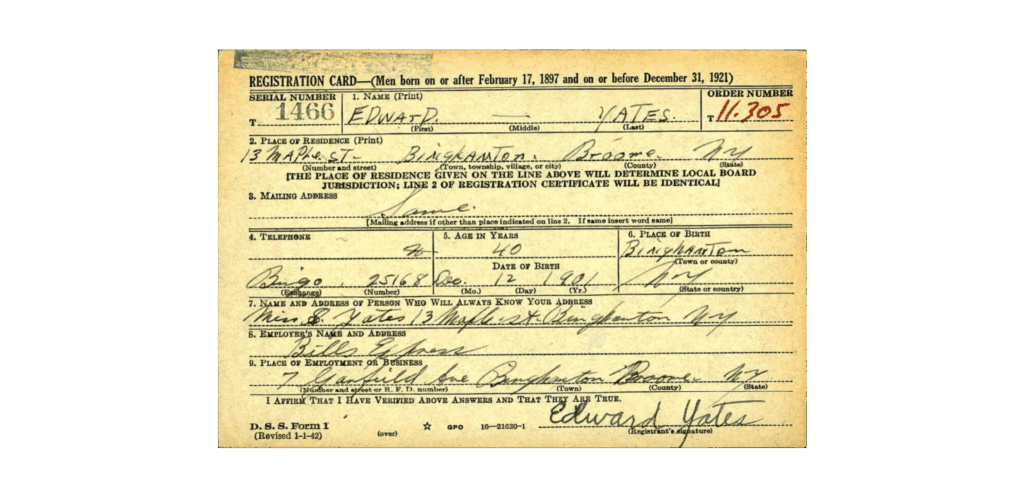 REGISTRATION CARD—(Men born on or after February 17, 1897 and on or before December 31, 1921)
SERIAL NUMBER 1. NAME (Print) ORDER NUMBER
T 1466 EDWARD. — YATES. T 11.305
(First) (Middle) (Last)
2. PLACE OF RESIDENCE (Print)
13 MAPLE ST- BINGHAMTON. Broome. NY
(Number and street) (Town, township, village, or city) (County) (State)
[THE PLACE OF RESIDENCE GIVEN ON THE LINE ABOVE WILL DETERMINE LOCAL BOARD
JURISDICTION; LINE 2 OF REGISTRATION CERTIFICATE WILL BE IDENTICAL]
3. MAILING ADDRESS
Same.
[Mailing address if other than place indicated on line 2. If same insert word same]
4. TELEPHONE 5. AGE IN YEARS 6. PLACE OF BIRTH
40 BINGHAMTON
(Town or county)
DATE OF BIRTH
Bingo. 25168 Dec. 12 1901 NY
(Exchange) (Number) (Mo.) (Day) (Yr.) (State or country)
7. NAME AND ADDRESS OF PERSON WHO WILL ALWAYS KNOW YOUR ADDRESS
Miss E Yates 13 Maple St Binghamton NY
8. EMPLOYER'S NAME AND ADDRESS
Bills Express
9. PLACE OF EMPLOYMENT OR BUSINESS
7 Garfield Ave Binghamton Broome. NY
(Number and street or R. F. D. number) (Town) (County) (State)
I AFFIRM THAT I HAVE VERIFIED ABOVE ANSWERS AND THAT THEY ARE TRUE.
Edward Yates
D. S. S. Form 1 ☆ GPO 16—21630-1 (Registrant's signature)
(Revised 1-1-42) (over)